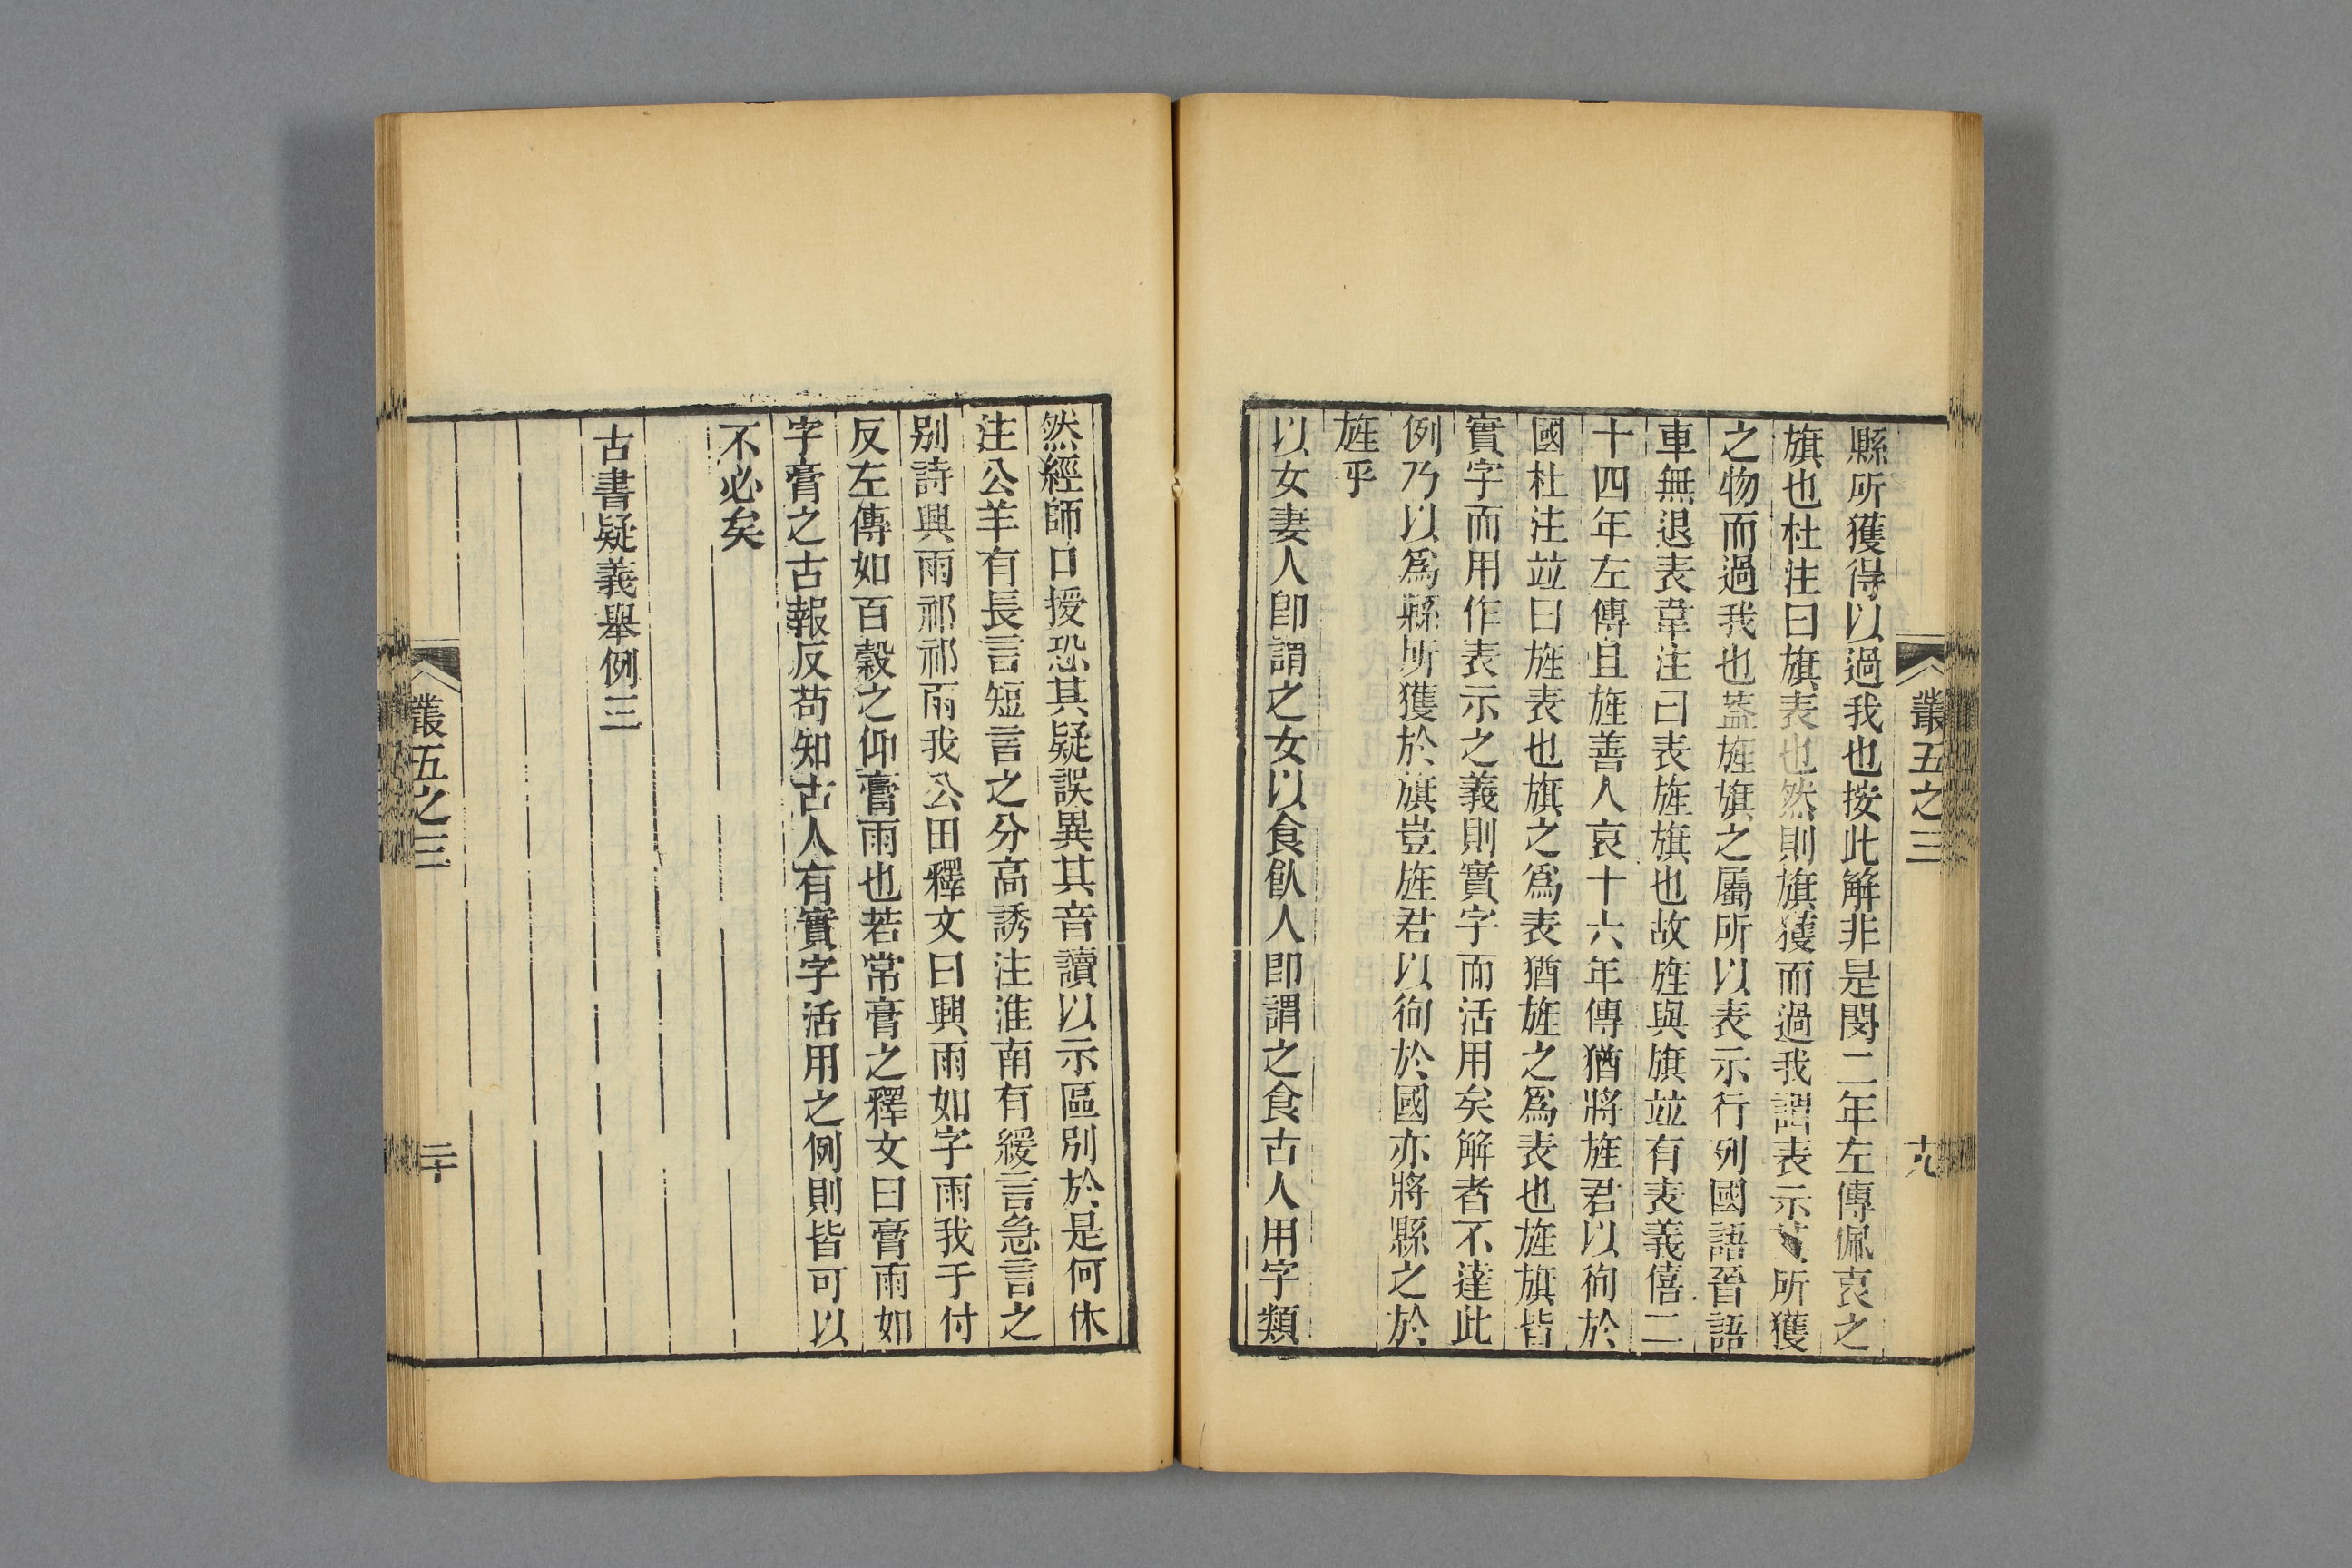 叢五之三
十九
縣所獲得以過我也按此解非是閔二年左傳佩衷之
旗也杜注曰旗表也然則旗獲而過我謂表示其所獲
之物而過我也葢旌旗之屬所以表示行列國語晉語
車無退表韋注曰表旌旗也故旌與旗竝有表義僖二
十四年左傳且旌善人哀十六年傳猶將旌君以徇於
國杜注竝曰旌表也旗之爲表猶旌之爲表也旌旗皆
實字而用作表示之義則實字而活用矣解者不達此
例乃以爲縣所獲於旗豈旌君以徇於國亦將縣之於
旌乎
以女妻人卽謂之女以食飮人卽謂之食古人用字類
然經師口授恐其疑誤異其音讀以示區別於是何休
注公羊有長言短言之分高誘注淮南有緩言急言之
别詩興雨祁祁雨我公田釋文曰興雨如字雨我于付
反左傳如百穀之仰膏雨也若常膏之釋文曰膏雨如
字膏之古報反苟知古人有實字活用之例則皆可以
不必矣
古書疑義舉例三
叢五之三
二十